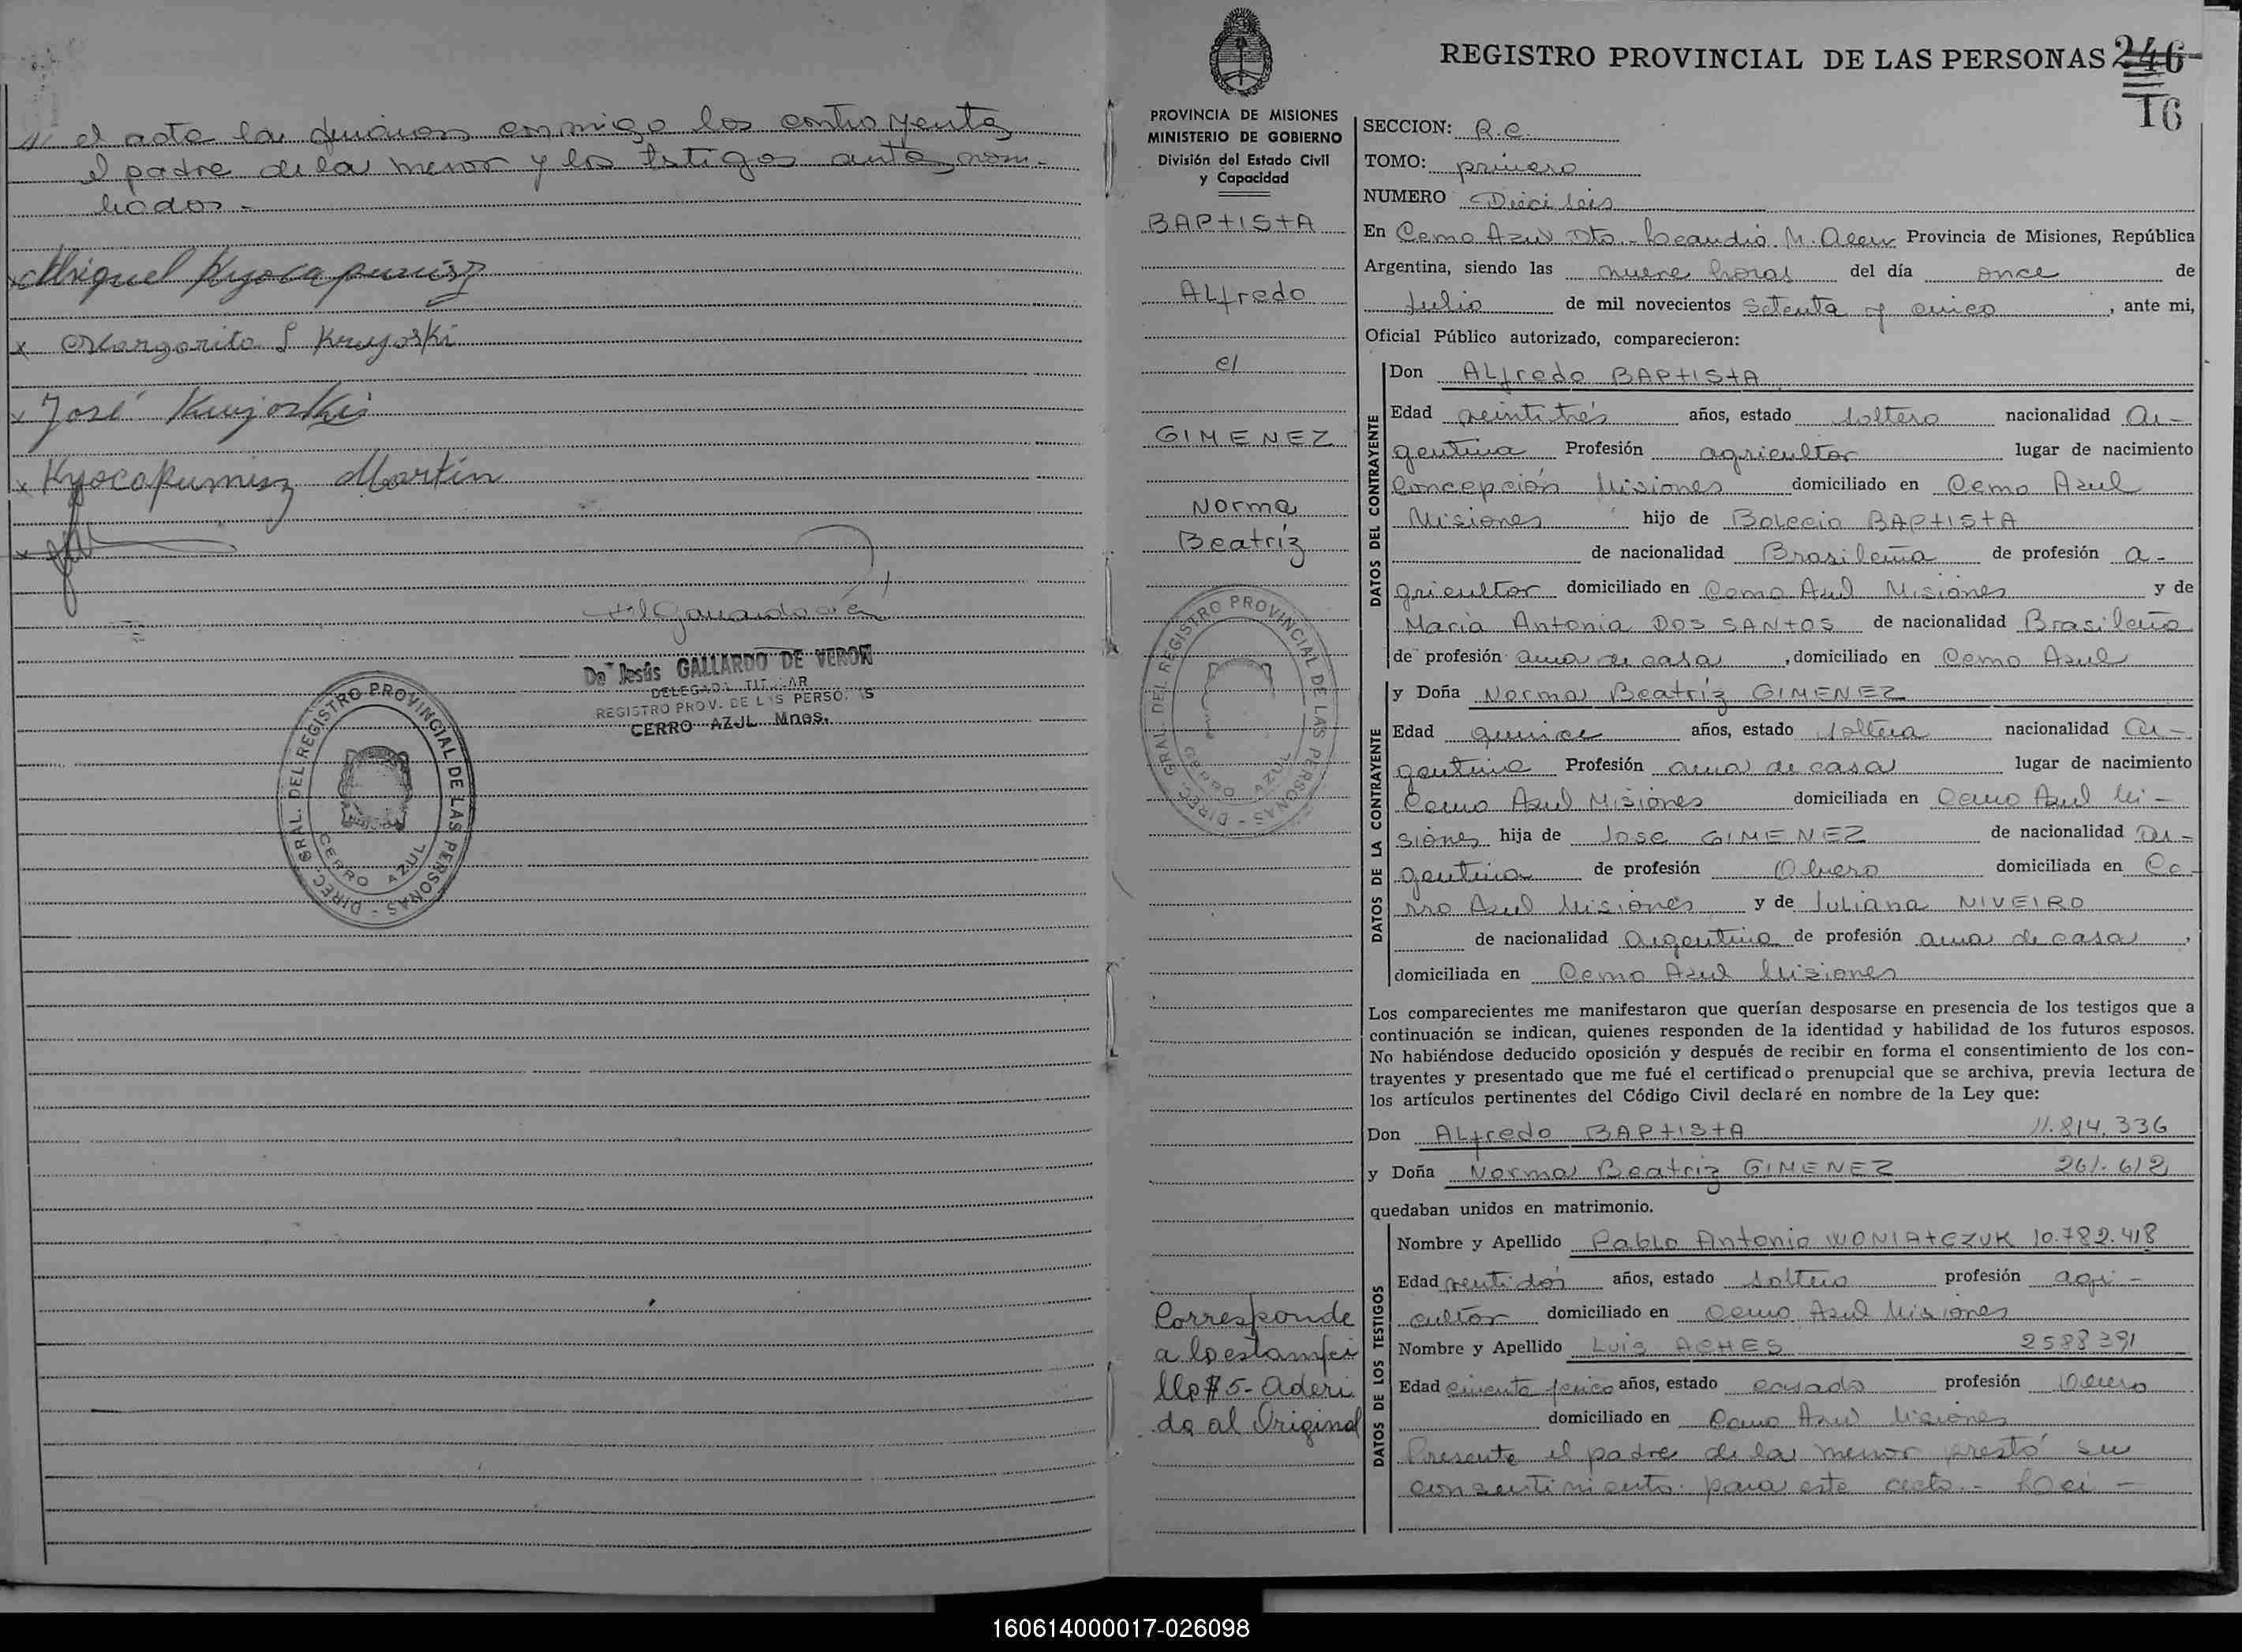 // el acta la firman conmigo los contrayentes
el padre de la menor y los testigos antes nom-
brados.-
x Miguel
x Margarita S
x José
x Martin
Da Jesús GALLARDO DE VERON
DELEGADA TITULAR
REGISTRO PROV. DE LAS PERSONAS
CERRO AZUL Mnes.
DIREC. GRAL. DEL REGISTRO PROVINCIAL DE LAS PERSONAS -
CERRO AZUL
PROVINCIA DE MISIONES
MINISTERIO DE GOBIERNO
División del Estado Civil
y Capacidad
BAPtIStA
ALfredo
c/
GIMENEZ
Norma
Beatríz
DIREC. GRAL. DEL REGISTRO PROVINCIAL DE LAS PERSONAS -
CERRO AZUL
Corresponde
a la estampi
lla $ 5- aderi
da al Original
REGISTRO PROVINCIAL DE LAS PERSONAS 246
16
SECCION: R.C.
TOMO: primero
NUMERO Dieciseis
En Cerro Azul Dto. Leandro N. Alem Provincia de Misiones, República
Argentina, siendo las nueve horas del día once de
Julio de mil novecientos Setenta y cinco, ante mi,
Oficial Público autorizado, comparecieron:
DATOS DEL CONTRAYENTE
Don ALfredo BAPtIStA
Edad veintitrés años, estado soltero nacionalidad ar-
gentina Profesión agricultor lugar de nacimiento
Concepción Misiones domiciliado en Cerro Azul
Misiones hijo de BAPtIStA
de nacionalidad Brasileña de profesión a-
gricultor domiciliado en Cerro Azul Misiones y de
María Antonia DOS SANtOS de nacionalidad Brasileña
de profesión ama de casa, domiciliado en Cerro Azul
DATOS DE LA CONTRAYENTE
y Doña Norma Beatríz GIMENEZ
Edad quince años, estado soltera nacionalidad ar-
gentina Profesión ama de casa lugar de nacimiento
Cerro Azul Misiones domiciliada en Cerro Azul Mi-
siones hija de Jose GIMENEZ de nacionalidad ar-
gentina de profesión Obrero domiciliada en Ce-
rro Azul Misiones y de Juliana NIVEIRO
de nacionalidad argentina de profesión ama de casa,
domiciliada en Cerro Azul Misiones
Los comparecientes me manifestaron que querían desposarse en presencia de los testigos que a
continuación se indican, quienes responden de la identidad y habilidad de los futuros esposos.
No habiéndose deducido oposición y después de recibir en forma el consentimiento de los con-
trayentes y presentado que me fué el certificado prenupcial que se archiva, previa lectura de
los artículos pertinentes del Código Civil declaré en nombre de la Ley que:
Don ALfredo BAPtIStA 11.814.336
y Doña Norma Beatriz GIMENEZ 261.612
quedaban unidos en matrimonio.
DATOS DE LOS TESTIGOS
Nombre y Apellido Pablo Antonio WONIAtCZUK 10.782.418
Edad ventidós años, estado soltero profesión agri-
cultor domiciliado en Cerro Azul Misiones
Nombre y Apellido Luis ACHES 2588391
Edad años, estado casado profesión Obrero
domiciliado en Cerro Azul Misiones
Presente el padre de la menor prestó su
consentimiento para este acto.-
160614000017-026098